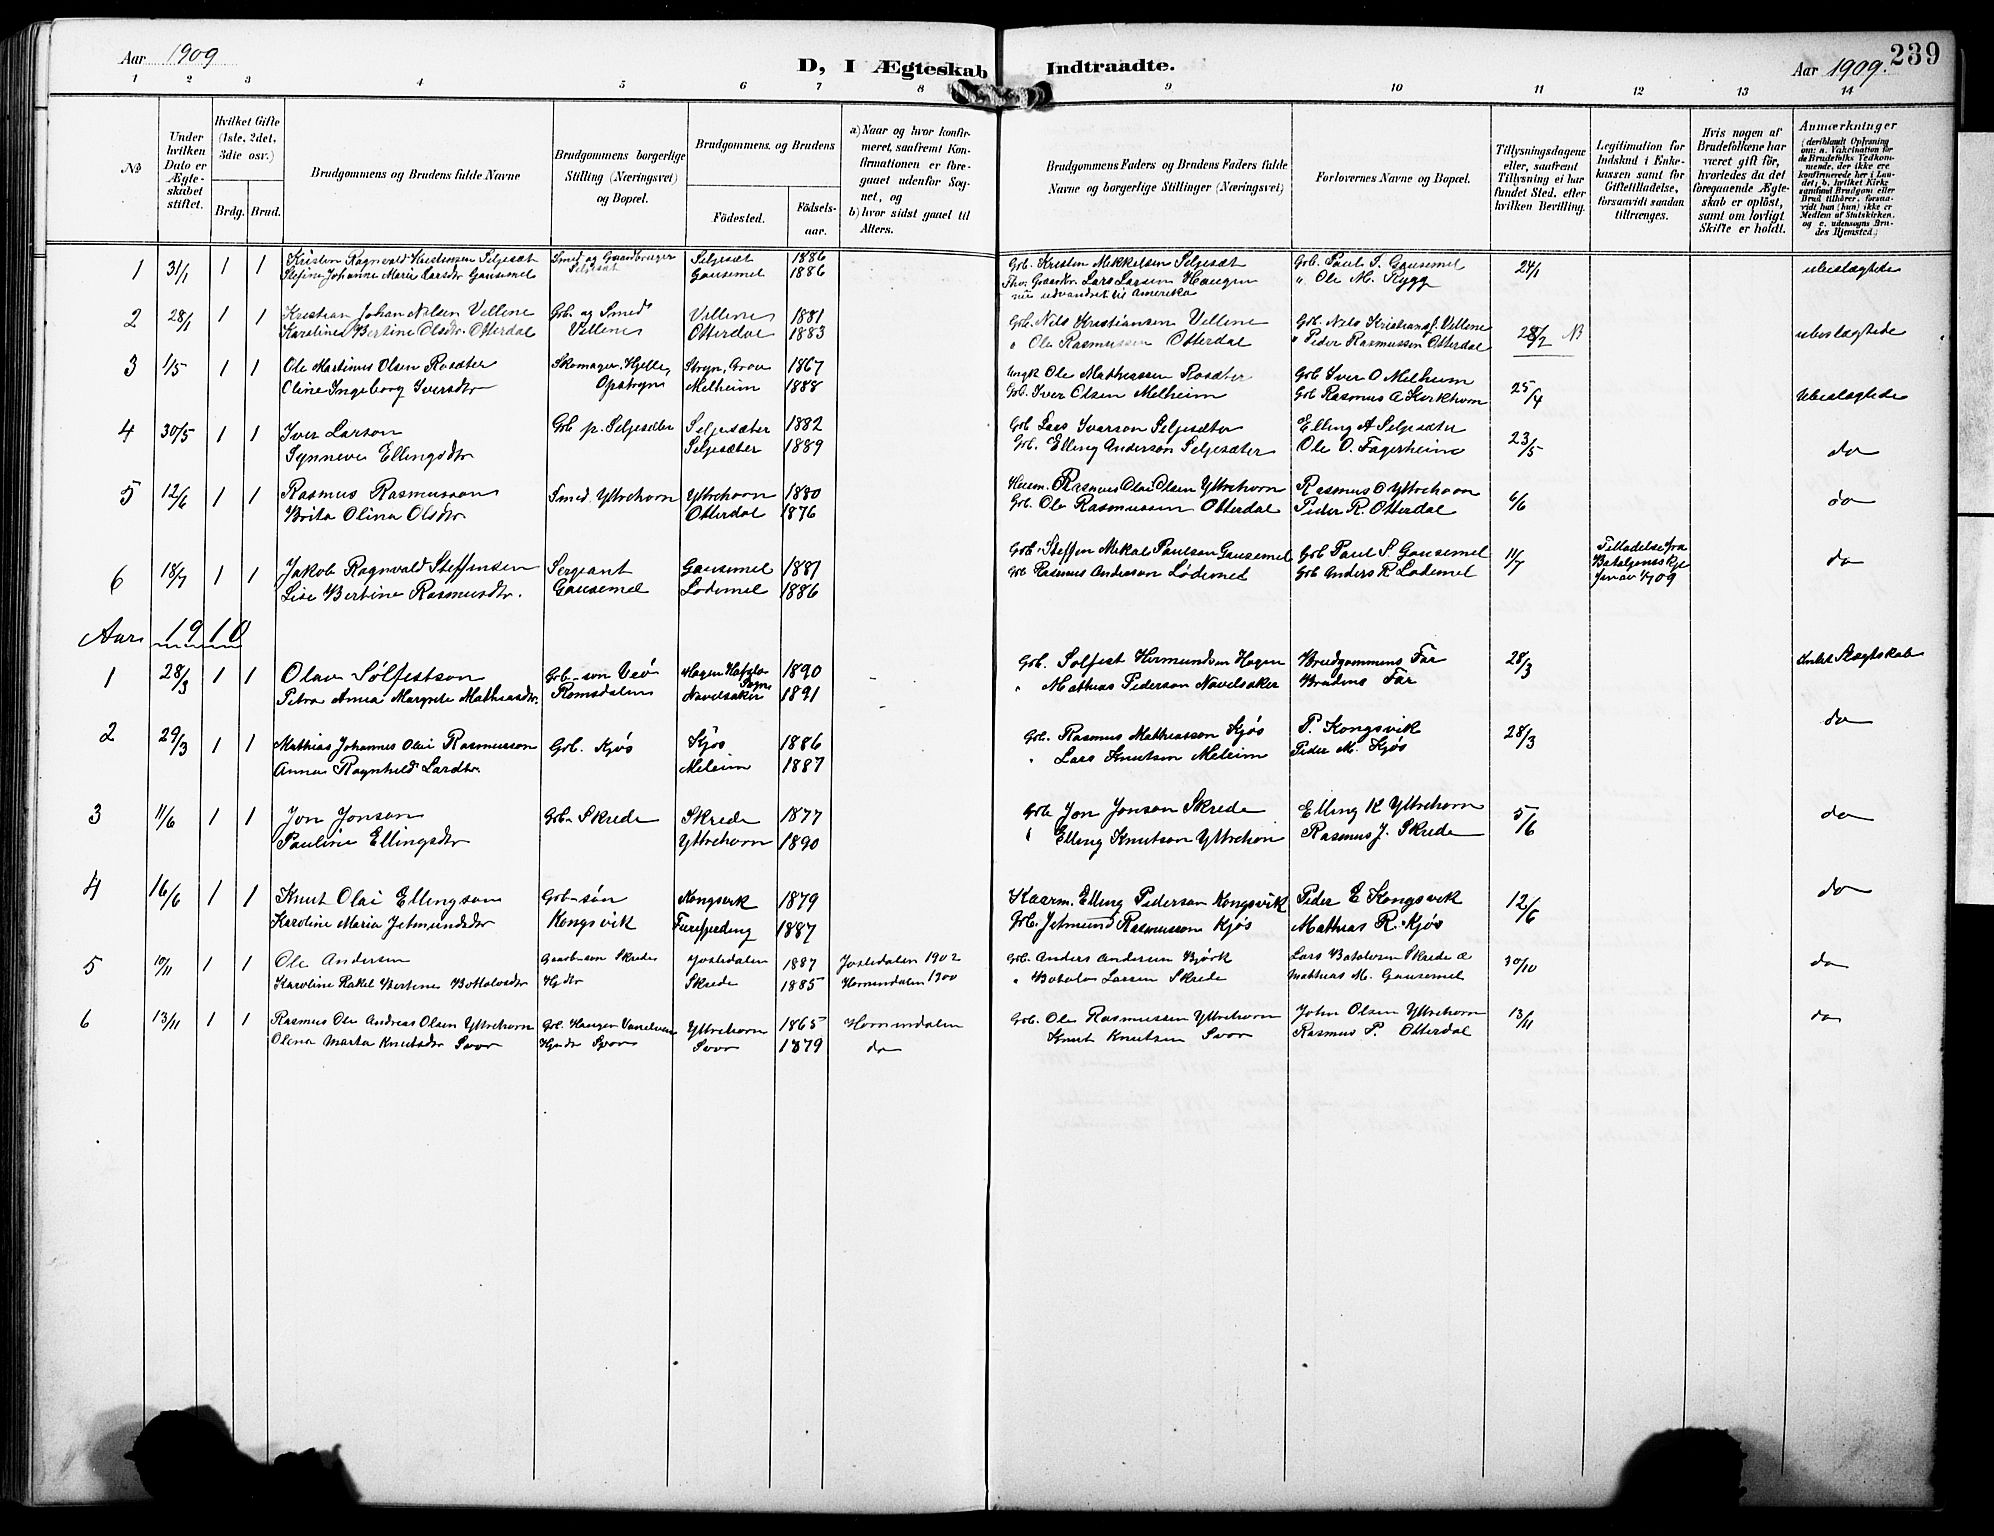 Aar 1909
D, I Ægteskab Indtraadte.
Aar 1909.
239
1 2 3 4 5 6 7 8 9 10 11 12 13 14
No
Under hvilken Dato er Ægteskabet stiftet.
Hvilket Gifte (1ste, 2det, 3die osv.)
Brdg. Brud.
Brudgommens og Brudens fulde Navne
Brudgommens borgerlige Stilling (Næringsvei) og Bopæl.
Brudgommens og Brudens
Fødested.
Fødselsaar.
a) Naar og hvor konfirmeret, saafremt Konfirmationen er foregaaet udenfor Sognet, og
b) hvor sidst gaaet til Alters.
Brudgommens Faders og Brudens Faders fulde Navne og borgerlige Stillinger (Næringsvei)
Forlovernes Navne og Bopæl.
Tillysningsdagene eller, saafremt Tillysning ei har fundet Sted, efter hvilken Bevilling.
Legitimation for Indskud i Enkekassen samt for Giftetilladelse, forsaavidt saadan tiltrænges.
Hvis nogen af Brudefolkene har været gift før, hvorledes da det foregaaende Ægteskab er opløst, samt om lovligt Skifte er holdt.
Anmærkninger (deriblandt Oplysning om: a. Vakcination for de Brudefolks Vedkommende, der ikke ere konfirmerede her i Landet; b. hvilket Kirkesamfund Brudgom eller Brud tilhører, forsaavidt han (hun) ikke er Medlem af Statskirken, og c. udensogns Brudes Hjemsted.)
1 31/1 1 1 Kristen Ragnvald Kristensen Seljesæt Smed og Gaardbruger Seljesæt 1886 Grb. Kristen Mikkelsen Seljesæt Grb. Paul S. Gausemel 24/1 ubeslægtede
Stefine Johanne Marie Larsdtr Gausemel Seljesæt Gausemel 1886 Lars Larsen Haugen " Ole M. Rygg
nu udvandret til Amerika
2 28/1 1 1 Kristian Johan Nilsen Vellene Grb og Smed Vellene 1881 Grb. Nils Kristiansen Vellene Grb. Nils Vellene 28/2 NB ubeslægtede
Karoline Bertine Olsdtr. Otterdal Vellene Otterdal 1883 " Ole Rasmussen Otterdal " Peder Rasmussen Otterdal
3 1/5 1 1 Ole Martinus Olsen Rosæter Skomager, Hjelle, Stryn, Grov 1867 Ungk Ole Mathiassen Rosæter Grb Iver O Melheim 25/4 Ubeslægtede
Oline Ingeborg Iversdtr Opstryn Melheim 1888 Grb. Iver Olsen Melheim Grb Rasmus A Kirkhorn
4 30/5 1 1 Iver Larson Grb p. Seljesæter Seljesæter 1882 Grb Lars Ivarson Seljesæter Elling A Seljesæter 23/5 do
Synneve Ellingsdtr Seljesæter 1889 Grb. Elling Anderson Seljesæter Ole O. Fagerheim
5 12/6 1 1 Rasmus Rasmusson Smed Yttrehorn Yttrehorn 1880 Husm. Rasmus Olai Olsen Yttrehorn Rasmus O Yttrehorn 6/6 do
Brita Olina Olsdtr Otterdal 1876 Grb. Ole Rasmussen Otterdal Peder R. Otterdal
6 18/7 1 1 Jakob Ragnvald Steffensen Sergeant Gausemel 1881 Grb. Steffen Mikal Paulson Gausemel Grb Paul S. Gausemel 11/7 Tilladelse fra do
Lise Bertine Rasmusdtr. Gausemel Lødemel 1886 Grb Rasmus Anderson Lødemel Grb Anders R Lødemel
Aar 1910
1 28/3 1 1 Olav Sølfestson Grb-søn Veø Hagen Hafslo Sogn 1890 Grb. Solfest Hermundsen Hagen Brudgommens Far 28/3 Intet Slægtskab
Petra Anna Margrete Mathiasdtr. Romsdalen Navelsaker 1891 " Mathias Pederson Navelsaker Brudens Far
2 29/3 1 1 Mathias Johannes Olai Rasmusson Grb. Kjøs Kjøs 1886 Grb. Rasmus Mathiasson Kjøs P. Kongsvik 28/3 do
Anna Ragnhild Larsdtr. Meleim 1887 " Lars Knutson Meleim Peder M. Kjøs
3 11/6 1 1 Jon Jonson Grb Skrede Skrede 1877 Grb Jon Jonson Skrede Elling K Yttrehorn 5/6 do
Pauline Ellingsdtr Yttrehorn 1890 " Elling Knutson Yttrehorn Rasmus J. Skrede
4 16/6 1 1 Knut Olai Ellingson Grb-søn Kongsvik 1879 Kaarm. Elling Pederson Kongsvik Peder E Kongsvik 12/6 do
Karoline Maria Jetmundsdtr Kongsvik 1887 Grb. Jetmund Rasmusson Kjøs Mathias R. Kjøs
5 10/11 1 1 Ole Andersen Gaarbr-søn Skrede Jostedalen 1887 Jostedalen 1902 Grb. Anders Andersen Bjørk Lars Botolvsen Skrede 30/10 do
Karoline Rakel Bertine Botolvsdtr Skrede 1885 Hornindalen 1900 " Botolv Larsen Skrede Mathias M. Gausemel
6 13/11 1 1 Rasmus Ole Andreas Olsen Yttrehorn Grb. Haugen Vanelven Yttrehorn 1865 Hornindalen Grb. Ole Rasmussen Yttrehorn John Olsen Yttrehorn 13/11 do
Olina Marta Knutsdtr Svor Svor Svor 1879 do Knut Knutsen Svor Rasmus P. Otterdal